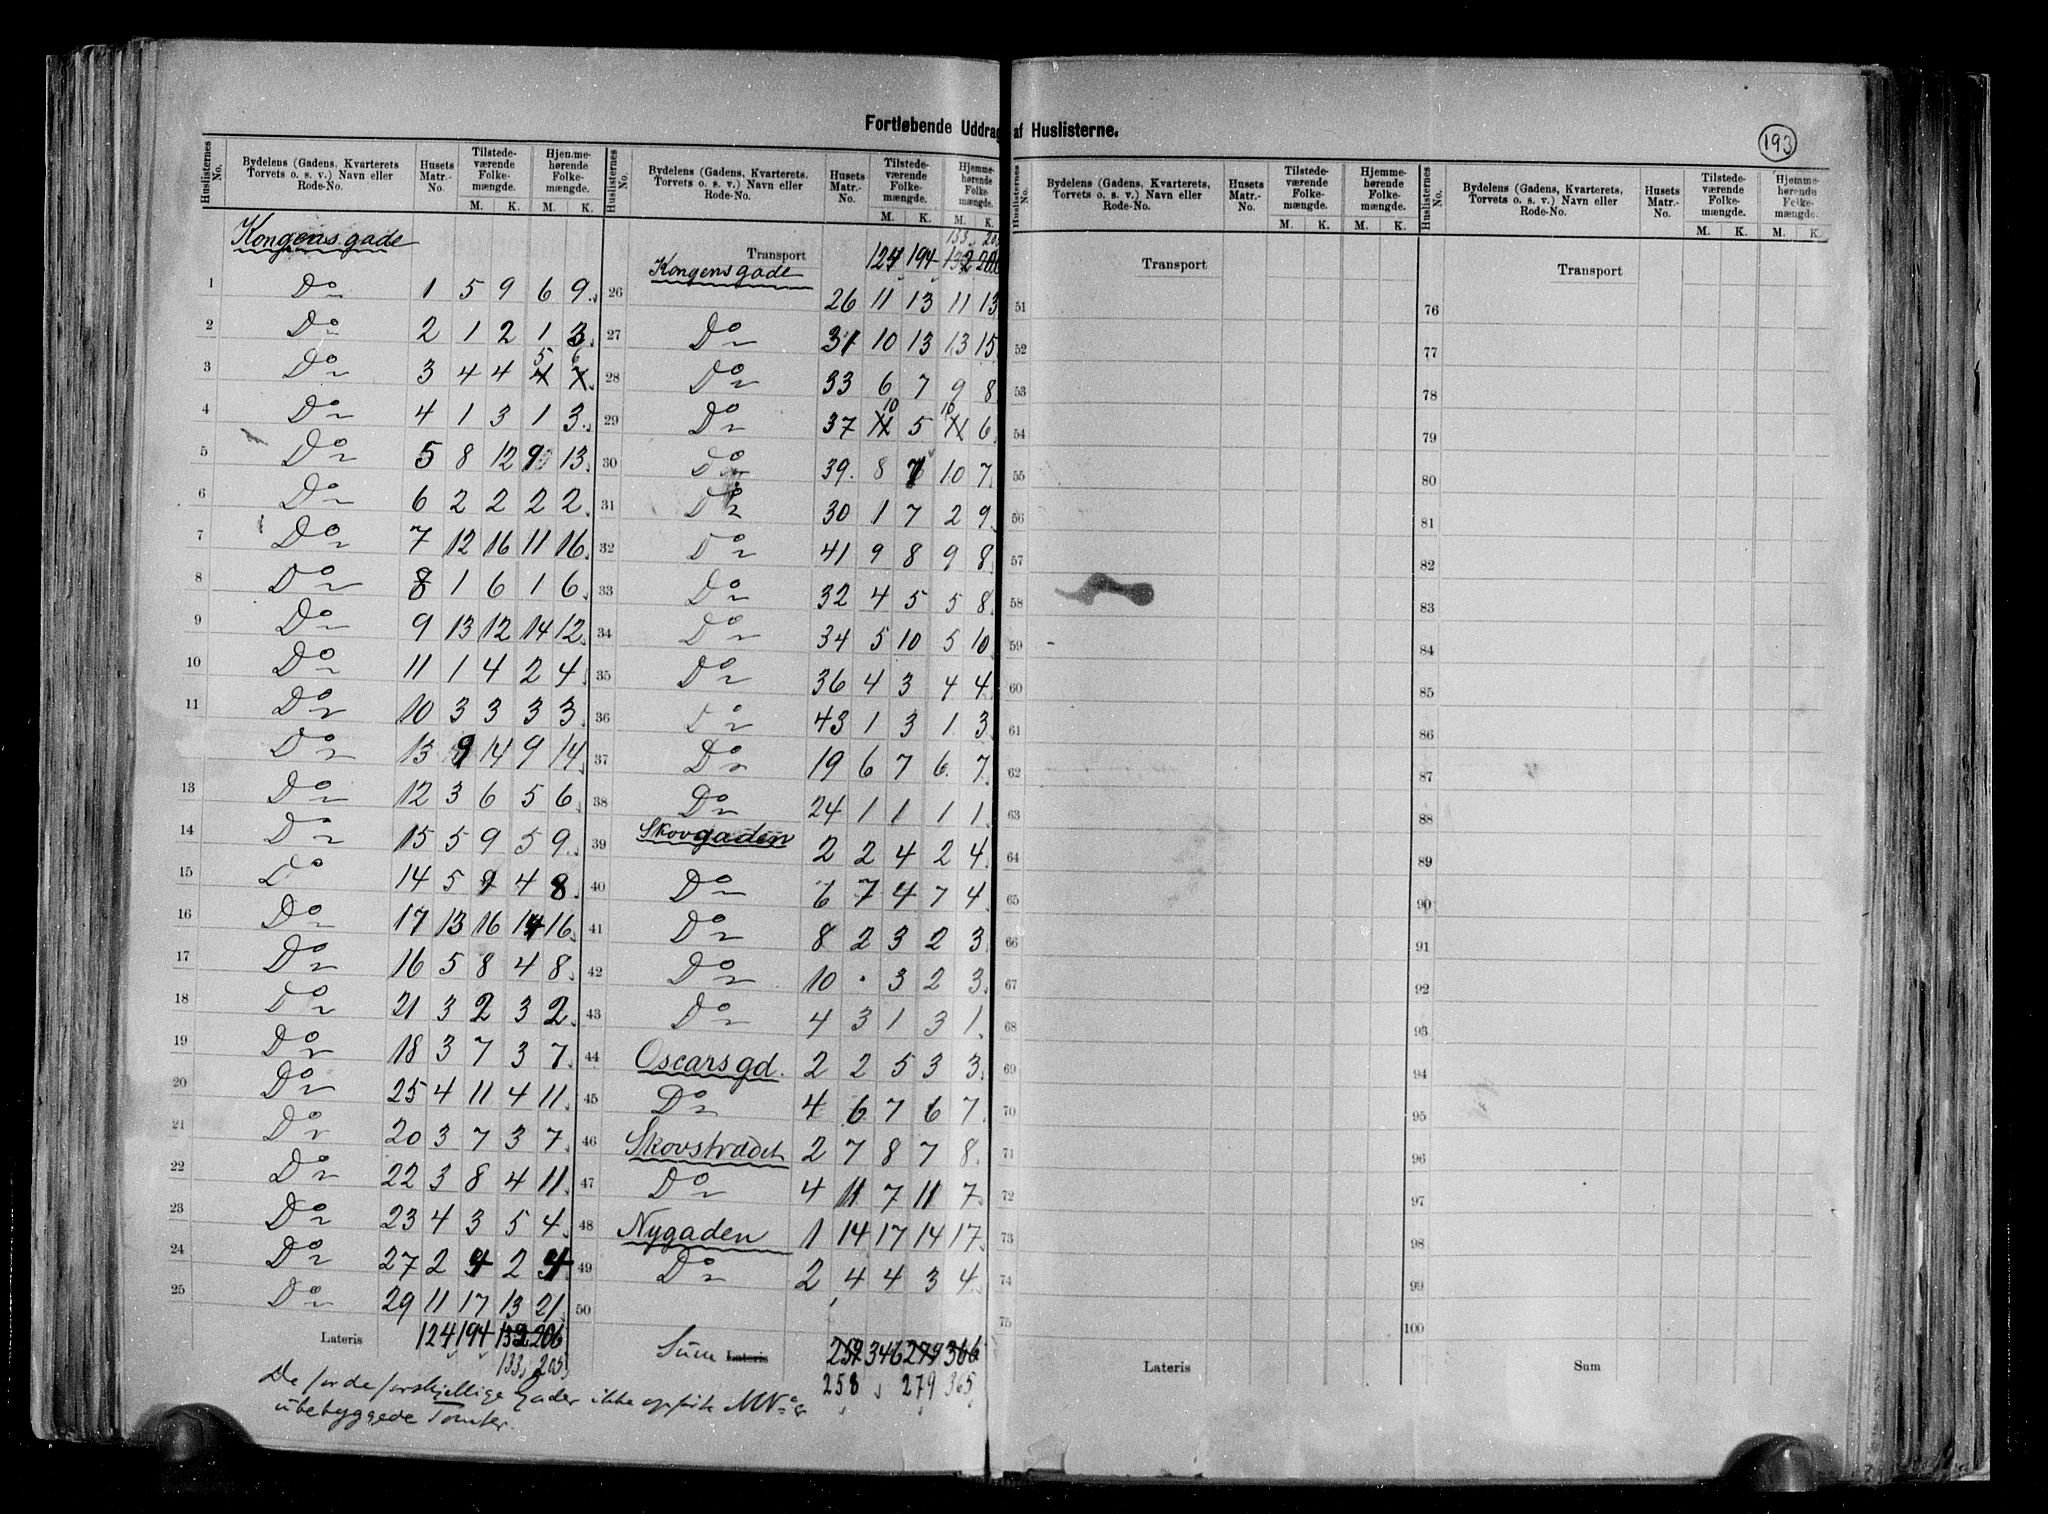 Fortløbende Uddrag af Huslisterne.
193
Huslisternes No. | Bydelens (Gadens, Kvarterets Torvets o. s. v.) Navn eller Rode-No. | Husets Matr.-No. | Tilstedeværende Folkemængde. M. K. | Hjemmehørende Folkemængde. M. K.
Kongensgade
1 Do 1 5 9 6 9
2 Do 2 1 2 1 3
3 Do 3 4 4 5 6
4 Do 4 1 3 1 3
5 Do 5 8 12 9 13
6 Do 6 2 2 2 2
7 Do 7 12 16 11 16
8 Do 8 1 6 1 6
9 Do 9 13 12 14 12
10 Do 11 1 4 2 4
11 Do 10 3 3 3 3
Do 13 9 14 9 14
13 Do 12 3 6 5 6
14 Do 15 5 9 5 9
15 Do 14 5 9 4 8
16 Do 17 13 16 14 16
17 Do 16 5 8 4 8
18 Do 21 3 2 3 2
19 Do 18 3 7 3 7
20 Do 25 4 11 4 11
21 Do 20 3 7 3 7
22 Do 22 3 8 4 11
23 Do 23 4 3 5 4
24 Do 27 2 4 2 4
25 Do 29 11 17 13 21
Lateris 124 194 132 206
133 205
De for de forskjellige Gader ikke opførte MNoer
ubebyggede Tomter.
Huslisternes No. | Bydelens (Gadens, Kvarterets. Torvets o. s. v.) Navn eller Rode-No. | Husets Matr.-No. | Tilstedeværende Folkemængde. M. K. | Hjemmehørende Folkemængde. M. K.
133 205
Transport 124 194 132 206
Kongensgade
26 26 11 13 11 13
27 Do 31 10 13 13 15
28 Do 33 6 7 9 8
29 Do 37 10 5 10 6
30 Do 39 8 7 10 7
31 Do 30 1 7 2 9
32 Do 41 9 8 9 8
33 Do 32 4 5 5 8
34 Do 34 5 10 5 10
35 Do 36 4 3 4 4
36 Do 43 1 3 1 3
37 Do 19 6 7 6 7
38 Do 24 1 1 1 1
39 Skovgaden 2 2 4 2 4
40 Do 6 7 4 7 4
41 Do 8 2 3 2 3
42 Do 10 . 3 2 3
43 Do 4 3 1 3 1
44 Oscarsgd. 2 2 5 3 3
45 Do 4 6 7 6 7
46 Skovstrædet 2 7 8 7 8
47 Do 4 11 7 11 7
48 Nygaden 1 14 17 14 17
49 Do 2 4 4 3 4
50
Sum Lateris 259 346 279 366
258 279 365
Huslisternes No. | Bydelens (Gadens, Kvarterets, Torvets o. s. v.) Navn eller Rode-No. | Husets Matr.-No. | Tilstedeværende Folkemængde. M. K. | Hjemmehørende Folkemængde. M. K.
Transport
51
52
53
54
55
56
57
58
59
60
61
62
63
64
65
66
67
68
69
70
71
72
73
74
75
Lateris
Huslisternes No. | Bydelens (Gadens, Kvarterets, Torvets o. s. v.) Navn eller Rode-No. | Husets Matr.-No. | Tilstedeværende Folkemængde. M. K. | Hjemmehørende Folkemængde. M. K.
Transport
76
77
78
79
80
81
82
83
84
85
86
87
88
89
90
91
92
93
94
95
96
97
98
99
100
Sum